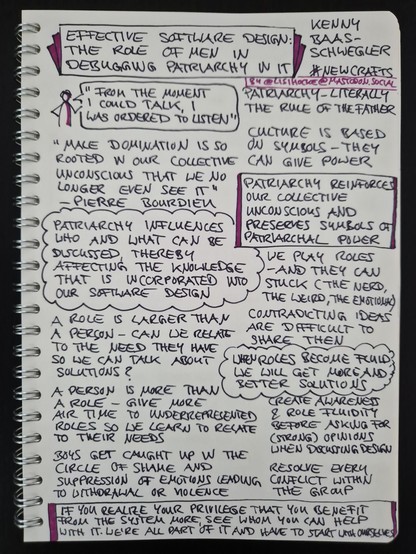 EFFECTIVE SOFTWARE DESIGN:
THE ROLE OF MEN IN
DEBUGGING PATRIARCHY IN IT
KENNY
BAAS-
SCHWEGLER
#NEWCRAFTS
BY @LISIHOCKE@MASTODON.SOCIAL
"FROM THE MOMENT
I COULD TALK, I
WAS ORDERED TO LISTEN"
"MALE DOMINATION IS SO
ROOTED IN OUR COLLECTIVE
UNCONSCIOUS THAT WE NO
LONGER EVEN SEE IT"
- PIERRE BOURDIEU
PATRIARCHY INFLUENCES
WHO AND WHAT CAN BE
DISCUSSED, THEREBY
AFFECTING THE KNOWLEDGE
THAT IS INCORPORATED INTO
OUR SOFTWARE DESIGN
A ROLE IS LARGER THAN
A PERSON - CAN WE RELATE
TO THE NEED THEY HAVE
SO WE CAN TALK ABOUT
SOLUTIONS?
A PERSON IS MORE THAN
A ROLE - GIVE MORE
AIR TIME TO UNDERREPRESENTED
ROLES SO WE LEARN TO RELATE
TO THEIR NEEDS
BOYS GET CAUGHT UP IN THE
CIRCLE OF SHAME AND
SUPPRESSION OF EMOTIONS LEADING
TO WITHDRAWAL OR VIOLENCE
PATRIARCHY - LITERALLY
THE RULE OF THE FATHER
CULTURE IS BASED
ON SYMBOLS - THEY
CAN GIVE POWER
PATRIARCHY REINFORCES
OUR COLLECTIVE
UNCONSCIOUS AND
PRESERVES SYMBOLS OF
PATRIARCHAL POWER
WE PLAY ROLES
- AND THEY CAN
STUCK (THE NERD,
THE WEIRD, THE EMOTIONAL)
CONTRADICTING IDEAS
ARE DIFFICULT TO
SHARE THEN
WHEN ROLES BECOME FLUID,
WE WILL GET MORE AND
BETTER SOLUTIONS
CREATE AWARENESS
& ROLE FLUIDITY
BEFORE ASKING FOR
(STRONG) OPINIONS
WHEN DISCUSSING DESIGN
RESOLVE EVERY
CONFLICT WITHIN
THE GROUP
IF YOU REALIZE YOUR PRIVILEGE THAT YOU BENEFIT
FROM THE SYSTEM MORE, SEE WHOM YOU CAN HELP
WITH IT. WE'RE ALL PART OF IT AND HAVE TO START WITH OURSELVES